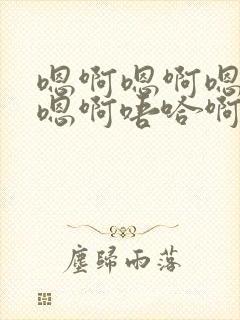 嗯啊嗯啊嗯
嗯啊唔哈啊
塵歸雨落